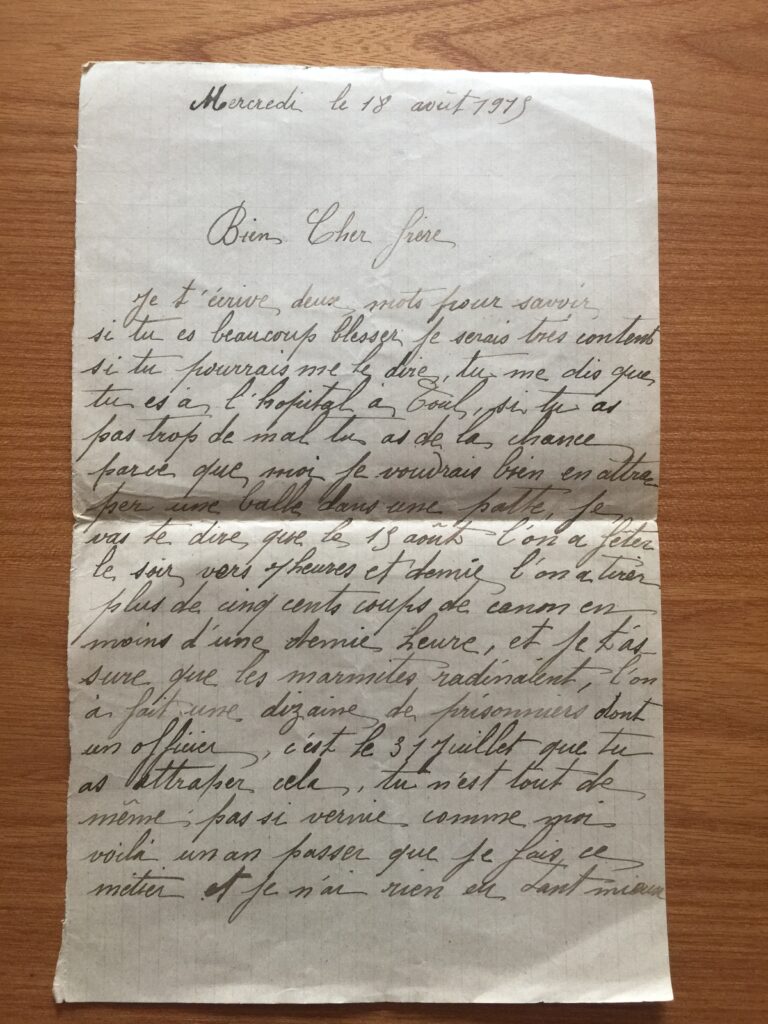 Mercredi le 18 août 1915
Bien Cher frère
Je t'écrive deux mots pour savoir
si tu es beaucoup blesser je serais très content
si tu pourrais me le dire, tu me dis que
tu es à l'hopital à Toul, si tu as
pas trop de mal tu as de la chance
parce que moi je voudrais bien en attra
per une balle dans une patte, je
vas te dire que le 15 août l'on a fêter
le soir vers 7 heures et demie l'on a tirer
plus de cinq cents coups de canon en
moins d'une demie heure, et je t'as-
sure que les marmites radinaient, l'on
à fait une dizaine de prisonniers dont
un officier, c'est le 31 Juillet que tu
as attraper cela, tu n'est tout de
même pas si vernie comme moi
voilà un an passer que je fais ce
métier et je n'ai rien eu tant mieux